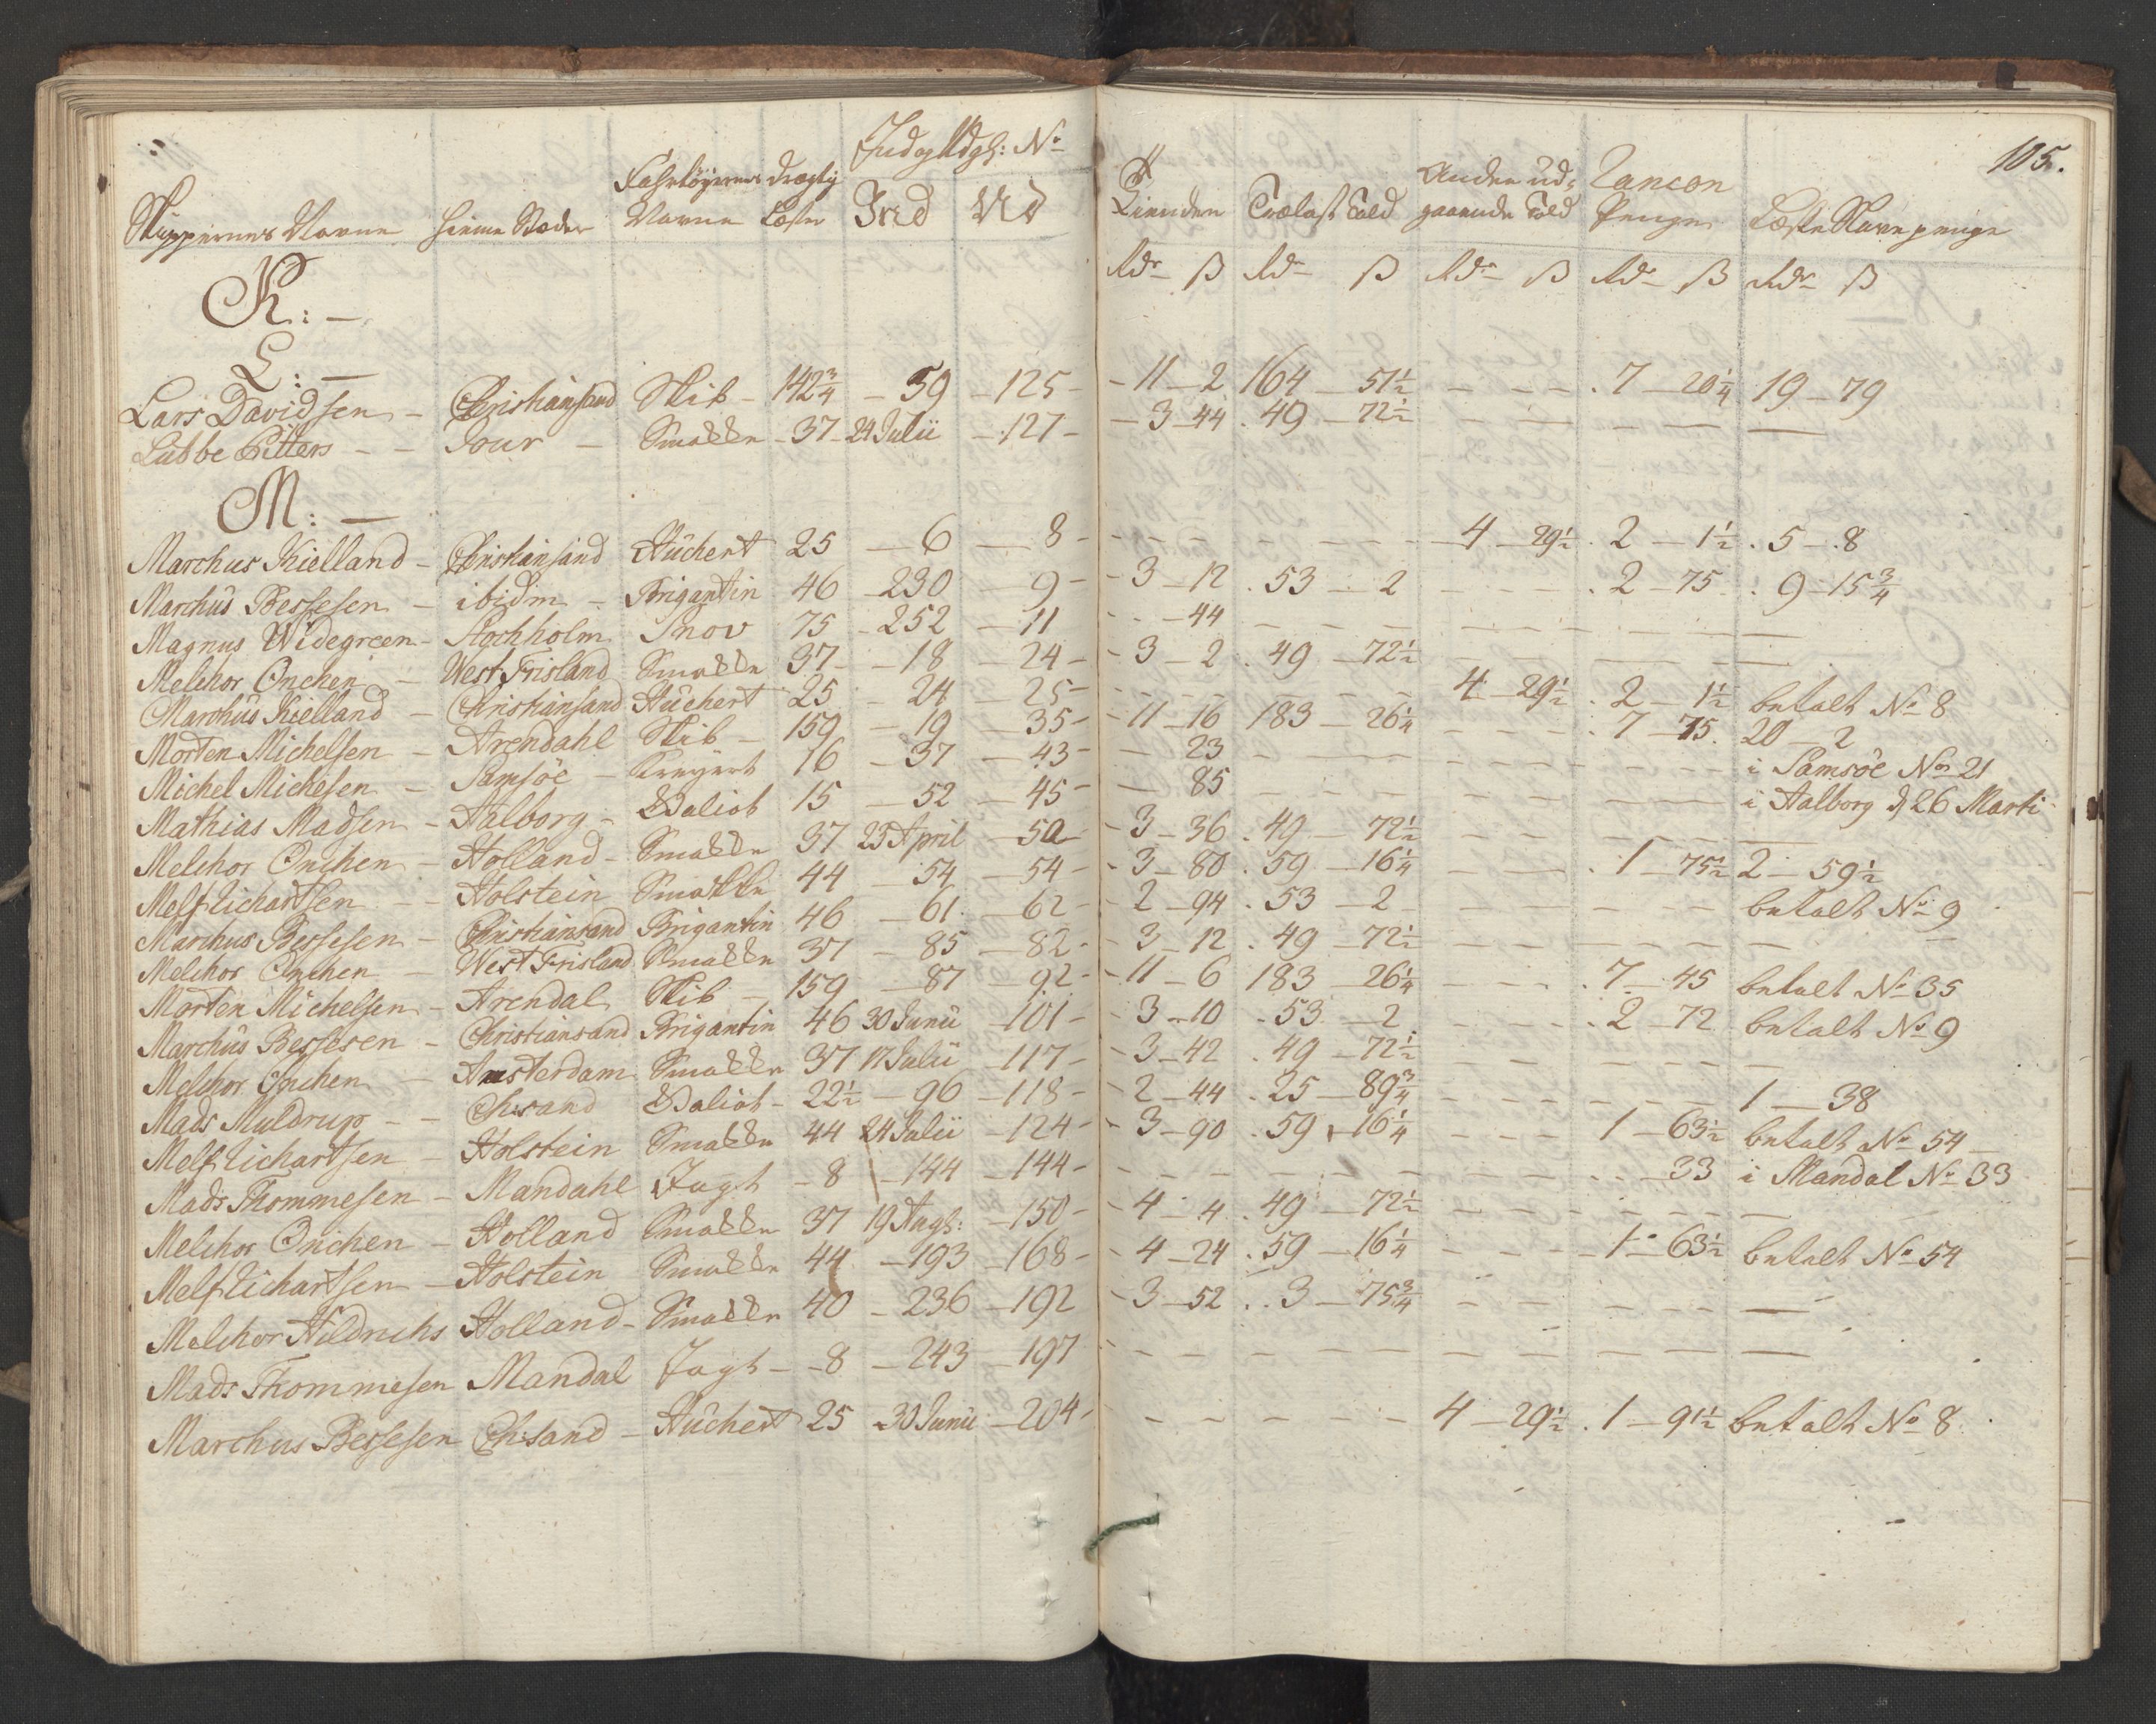 105.
Ind og Udg: No
Skippernes Navne hieme Stæder Fahrtöyernes Navne drægtig Læster Ind Ud Kienden Trælast Told Anden ud= gaaende Told Rancon Penge Læste Havnepenge
Rdr ß Rdr ß Rdr ß Rdr ß Rdr ß
K: —
L: —
Lars Davidsen - Christiansand Skib - 142¾ - 59 - 125 - 11 - 2 164 - 51½ - - - 7 - 20¼ 19 - 79
Lubbe Pitters - - Jour - Smakke - 37 - 24 Julii - 127 - 3 - 44 . 49 - 72½ - - - -
M: —
Marchus Kielland - Christiansand Huchert 25 - 6 - 8 - - - - 4 - 29½ . 2 - 1½ . 5 - 8
Marchus Bessesen - ibidm - Brigantin 46 - 230 - 9 - 3 - 12 . 53 - 2 - - - . 2 - 75 . 9 - 15¾
Magnus Widegreen - Stockholm Snov 75 - 252 - 11 - - 44 - - - -
Melchor Onchen - West Frisland Smakke 37 - 18 - 24 - 3 - 2 . 49 - 72½ - - - -
Marchus Kielland - Christiansand Huchert 25 - 24 - 25 - - - - 4 - 29½ . 2 - 1½ betalt No 8
Morten Michelsen - Arendahl Skib - 159 - 19 - 35 - 11 - 16 183 - 26¼ - - - . 7 - 75 . 20 - 2
Michel Michelsen - Samsöe - Kreyert 16 - 37 - 43 - - 23 - - - - i Samsöe No 21
Mathias Madsen - Aalborg - Galiot 15 - 52 - 45 - - 85 - - - - i Aalborg d 26 Marti
Melchor Onchen - Holland - Smakke 37 23 April - 50 - 3 - 36 . 49 - 72½ - - - -
Melf Richartsen - - Holstein Smakke 44 - 54 - 54 - 3 - 80 . 59 - 16¼ - - . 1 - 75½ 2 - 59½
Marchus Bessesen - Christiansand Brigantin 46 - 61 - 62 - 2 - 94 . 53 - 2 - - - betalt No 9
Melchor Onchen - West Frisland Smakke 37 - 85 - 82 - 3 - 12 . 49 - 72½ - - - -
Morten Michelsen - Arendal Skib - 159 - 87 - 92 - 11 - 6 183 - 26¼ - - . 7 - 45 betalt No 35
Marchus Bessesen - Christiansand Brigantin 46 30 Junii - 101 - 3 - 10 . 53 - 2 - - . 2 - 72 betalt No 9
Melchor Onchen - Amsterdam Smakke 37 17 Julii - 117 - 3 - 42 . 49 - 72½ - - - -
Mads Muldrup - - Ch:sand Galiot - 22½ - 96 - 118 - 2 - 44 . 25 - 89¾ - - - 1 - 38
Melf Richartsen - Holstein Smakke 44 24 Julii - 124 - 3 - 90 . 59 - 16¼ - - - 1 - 63½ betalt No 54
Mads Thommesen - Mandahl Jagt - 8 - 144 - 144 - - - - - 33 i Mandal No 33
Melchor Onchen - Holland Smakke 37 19 Augh: - 150 - 4 - 4 . 49 - 72½ - - - -
Melf Richartsen - Holstein Smakke 44 - 193 - 168 - 4 - 24 . 59 - 16¼ - - - 1 - 63½ betalt No 54
Melchor Hildrichs Holland - Smakke 40 - 236 - 192 - 3 - 52 . . 3 - 75¾ - - - -
Mads Thommesen Mandal Jagt - - 8 - 243 - 197 - - - - - -
Marchus Bessesen Ch:sand - Huchert 25 - 30 Junii - 204 - - - - 4 - 29½ . 1 - 91½ betalt No 8